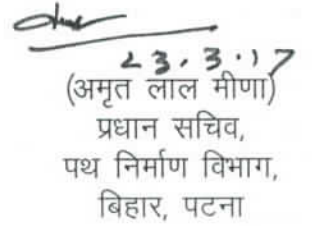 23.3.17
(अमृत लाल मीणा)
प्रधान सचिव,
पथ निर्माण विभाग,
बिहार, पटना